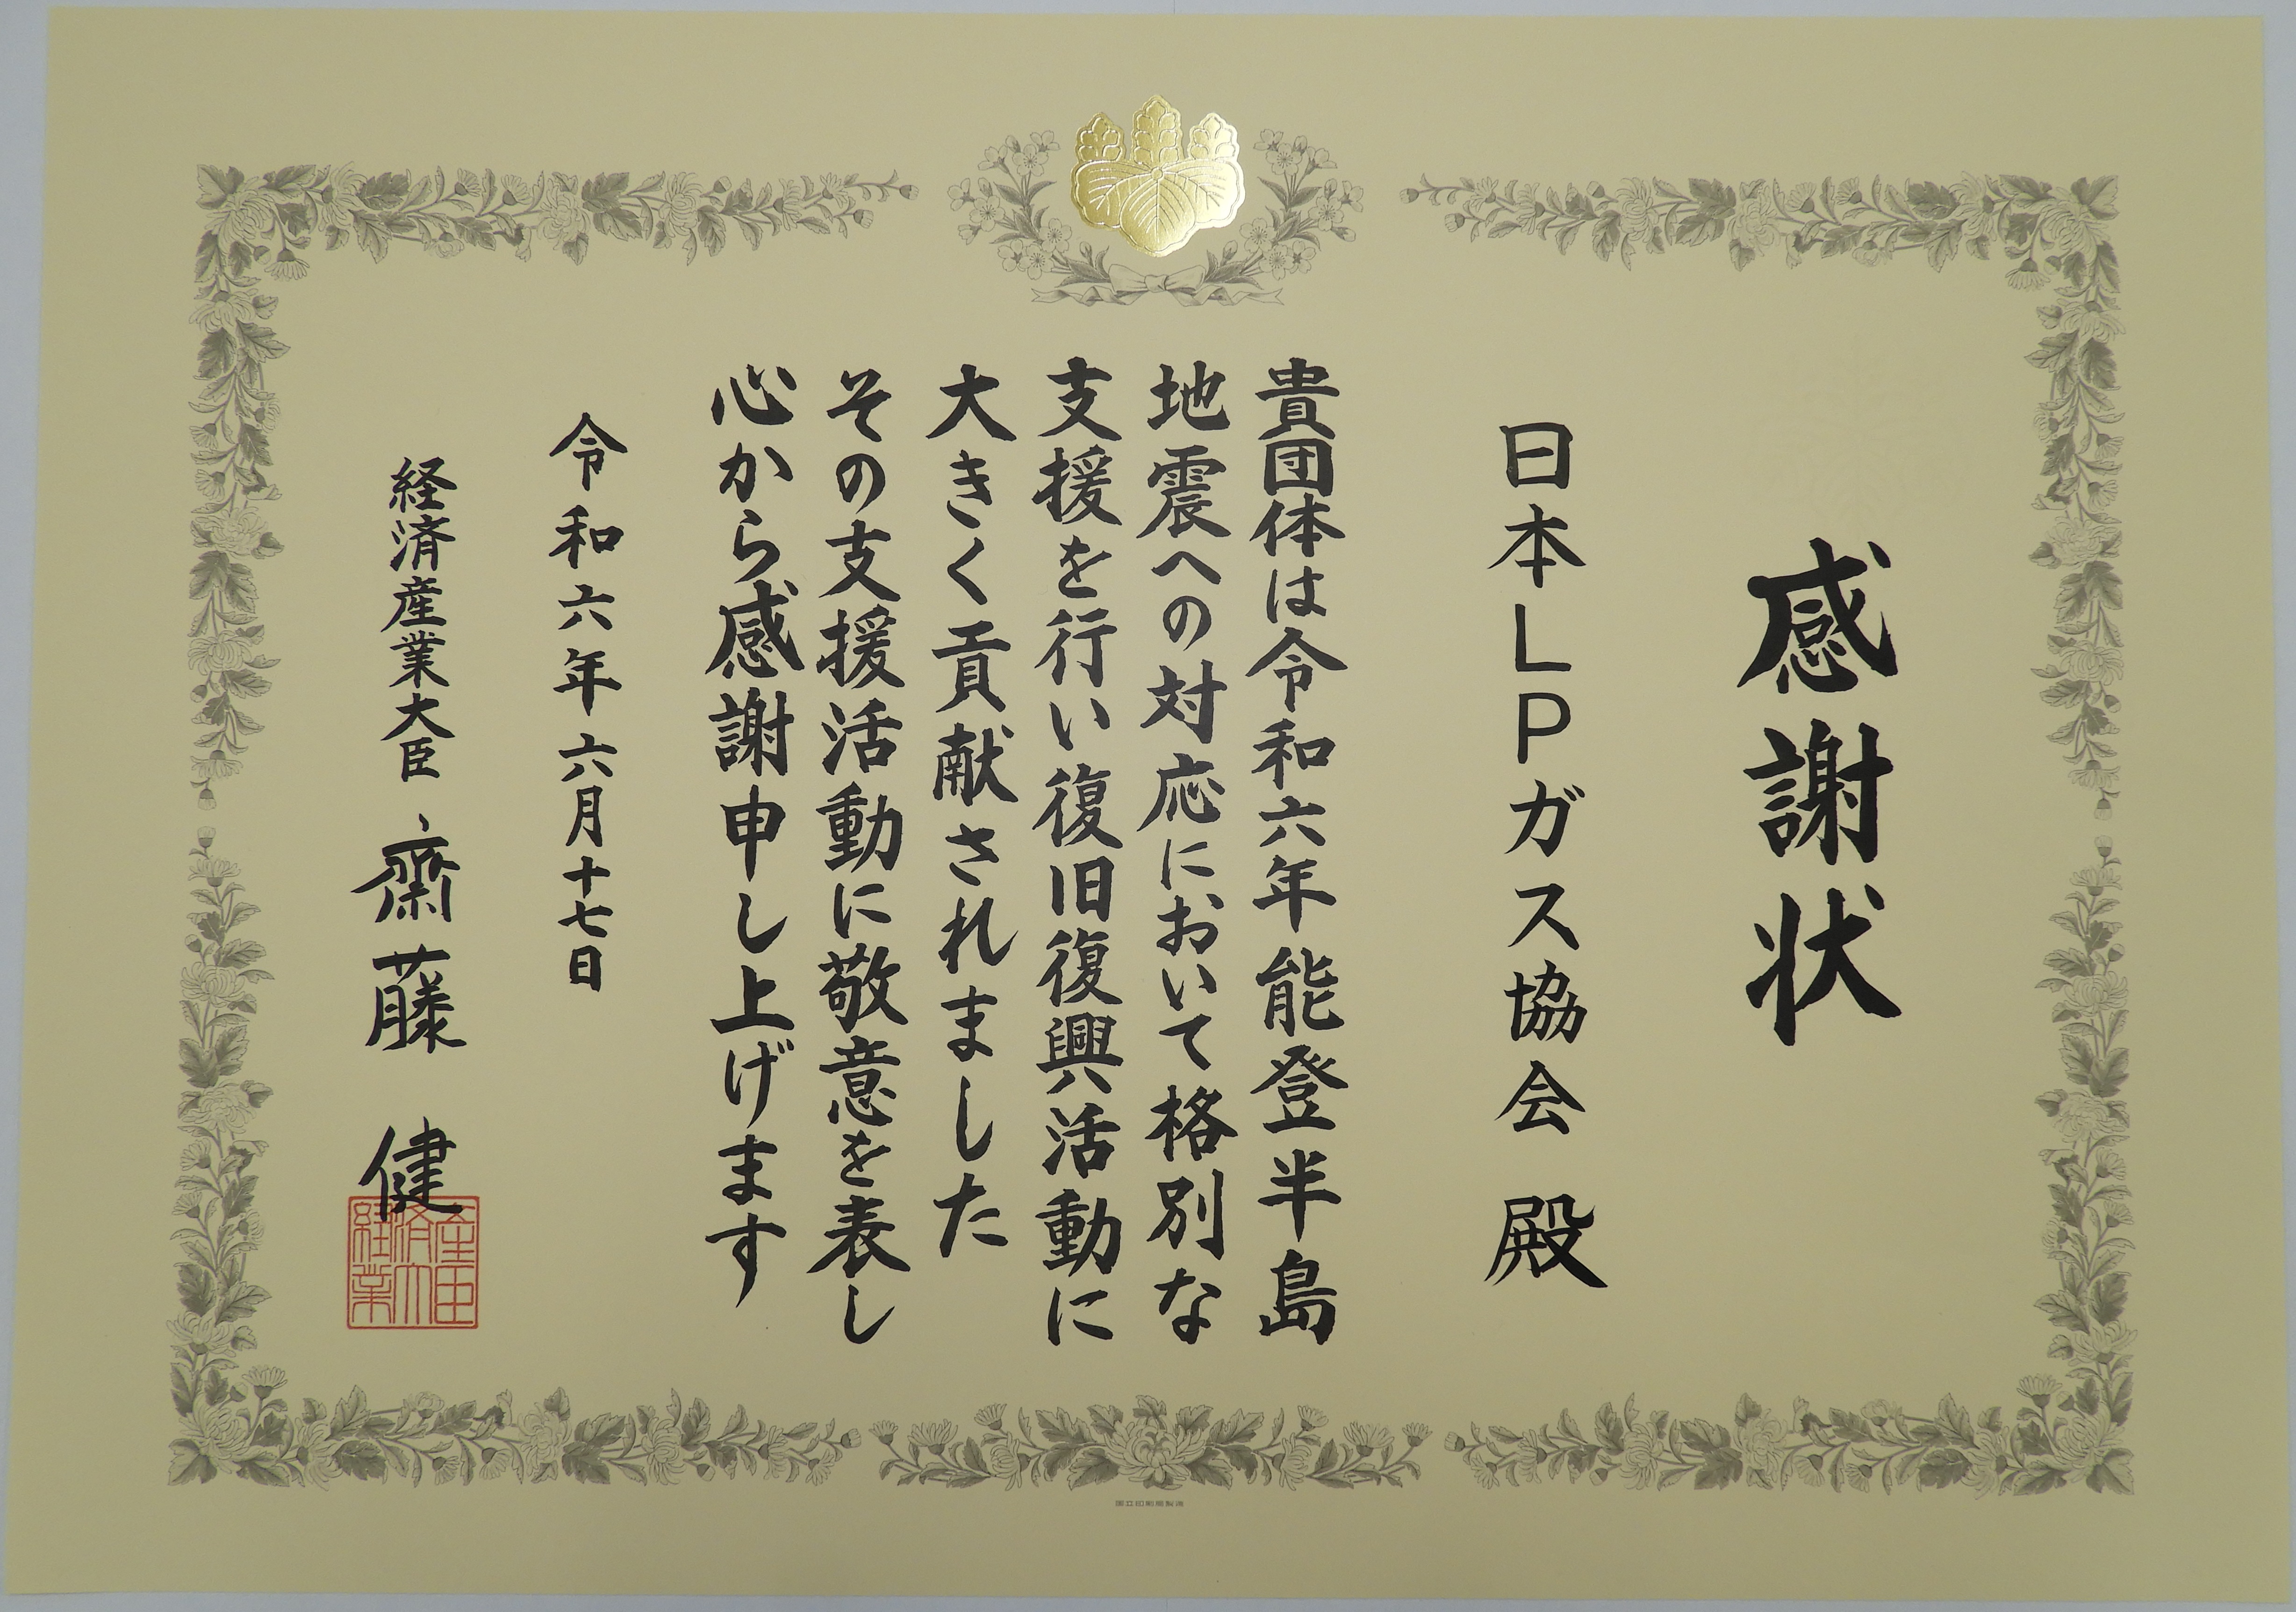 感謝状
日本LPガス協会 殿
貴団体は令和六年能登半島
地震への対応において格別な
支援を行い復旧復興活動に
大きく貢献されました
その支援活動に敬意を表し
心から感謝申し上げます
令和六年六月十七日
経済産業大臣 齋藤 健
国立印刷局製造